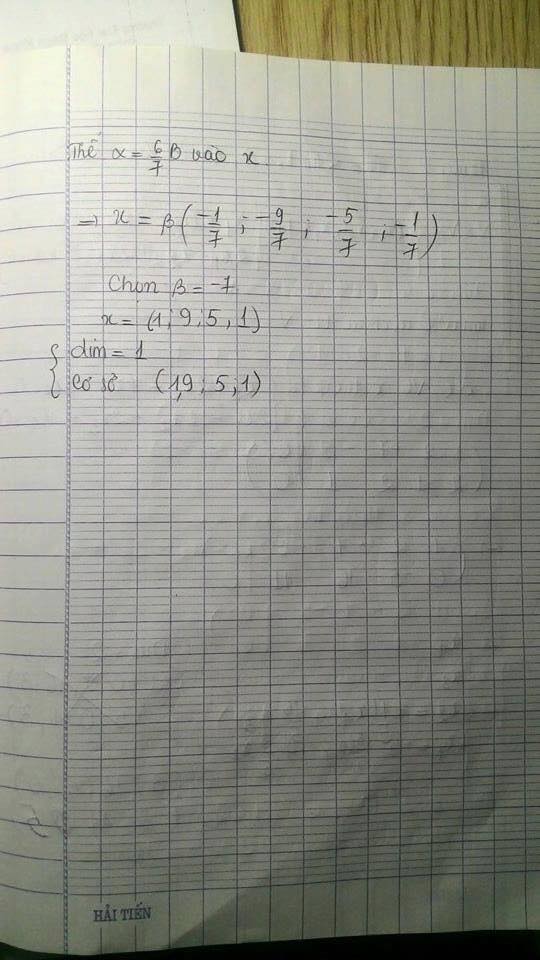 Thế α = 6/7 β vào x
⇒ x = β(-1/7 ; -9/7 ; -5/7 ; -1/7)
Chọn β = -7
x = (1 ; 9 ; 5 , 1)
{ dim = 1
cơ sở (1,9 ; 5 , 1)
HẢI TIẾN